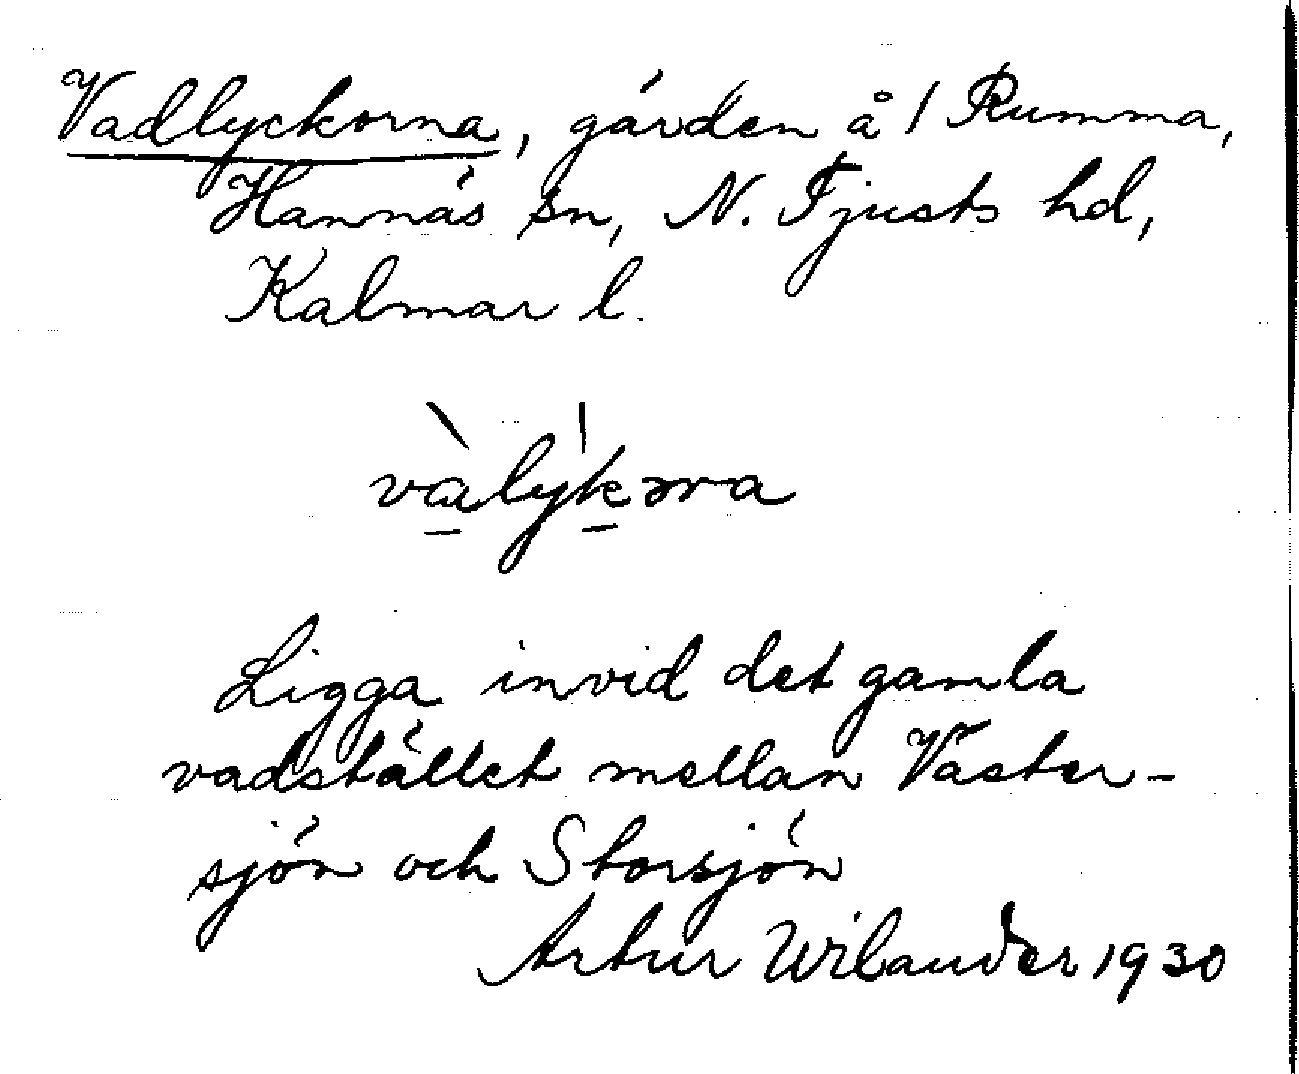 Vadlyckorna, gärden å / Rumma,
Hannäs sn, N. Tjusts hd,
Kalmar l.
vàlýkɔra
Ligga invid det gamla
vadstället mellan Väster-
sjön och Storsjön
Artur Wilander 1930